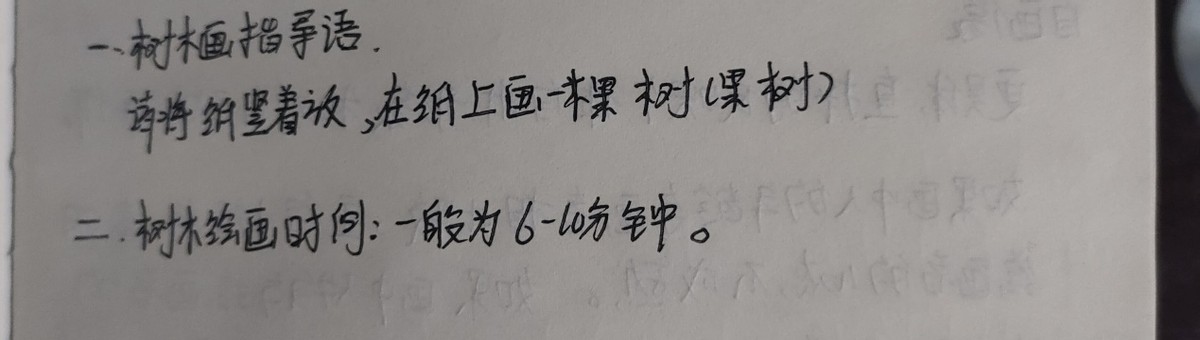 一.树木画指导语.
请将纸竖着放,在纸上画一棵树(果树)
二.树木绘画时间:一般为6-10分钟。